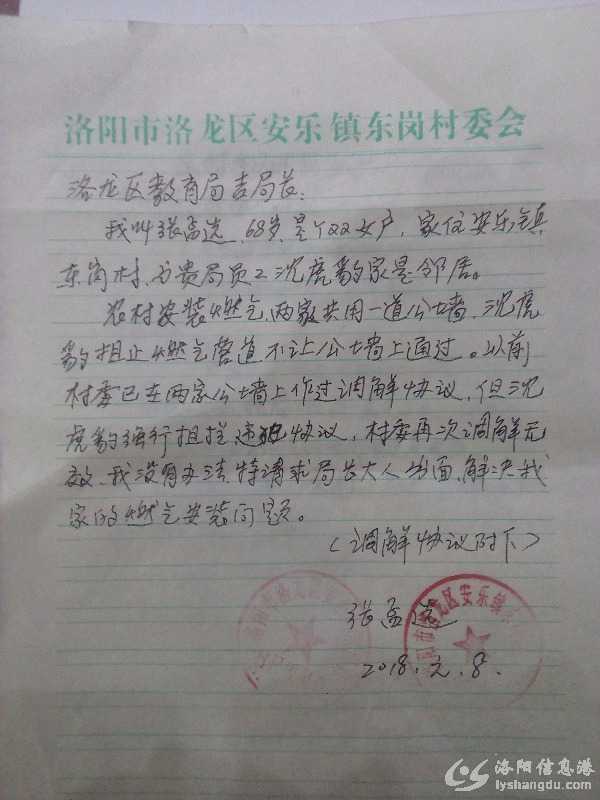 洛阳市洛龙区安乐镇东岗村委会
洛龙区教育局吉局长:
我叫张孟选、68岁、是个双女户,家住安乐镇
东岗村、与贵局员工沈虎豹家是邻居。
农村安装燃气,两家共用一道公墙、沈虎
豹阻止燃气管道不让公墙上通过。以前
村委已在两家公墙上作过调解协议,但沈
虎豹强行阻拦违犯协议,村委再次调解无
效、我没有办法,特请求局长大人出面,解决我
家的燃气安装问题。
(调解协议附下)
张孟选
2018.元.8.
洛阳市洛龙区安乐镇
洛阳信息港
lyshangdu.com